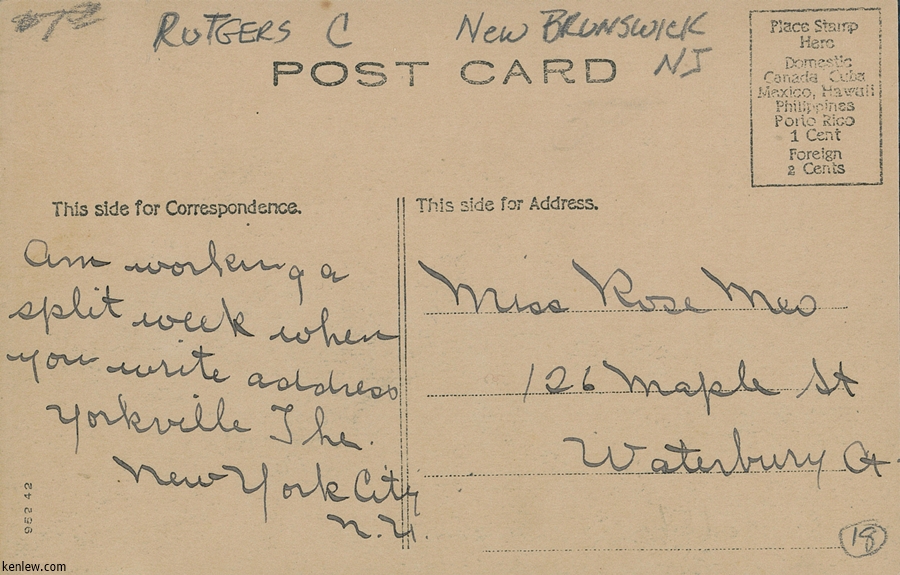 RUTGERS C NEW BRUNSWICK
NJ
POST CARD
Place Stamp
Here
Domestic
Canada, Cuba
Mexico, Hawaii
Philippines
Porto Rico
1 Cent
Foreign
2 Cents
This side for Correspondence.
This side for Address.
Am working a
split week when
you write address
Yorkville The.
New York City
N.Y.
Miss Rose Meo
126 Maple St
Waterbury Ct
952 42
18
kenlew.com